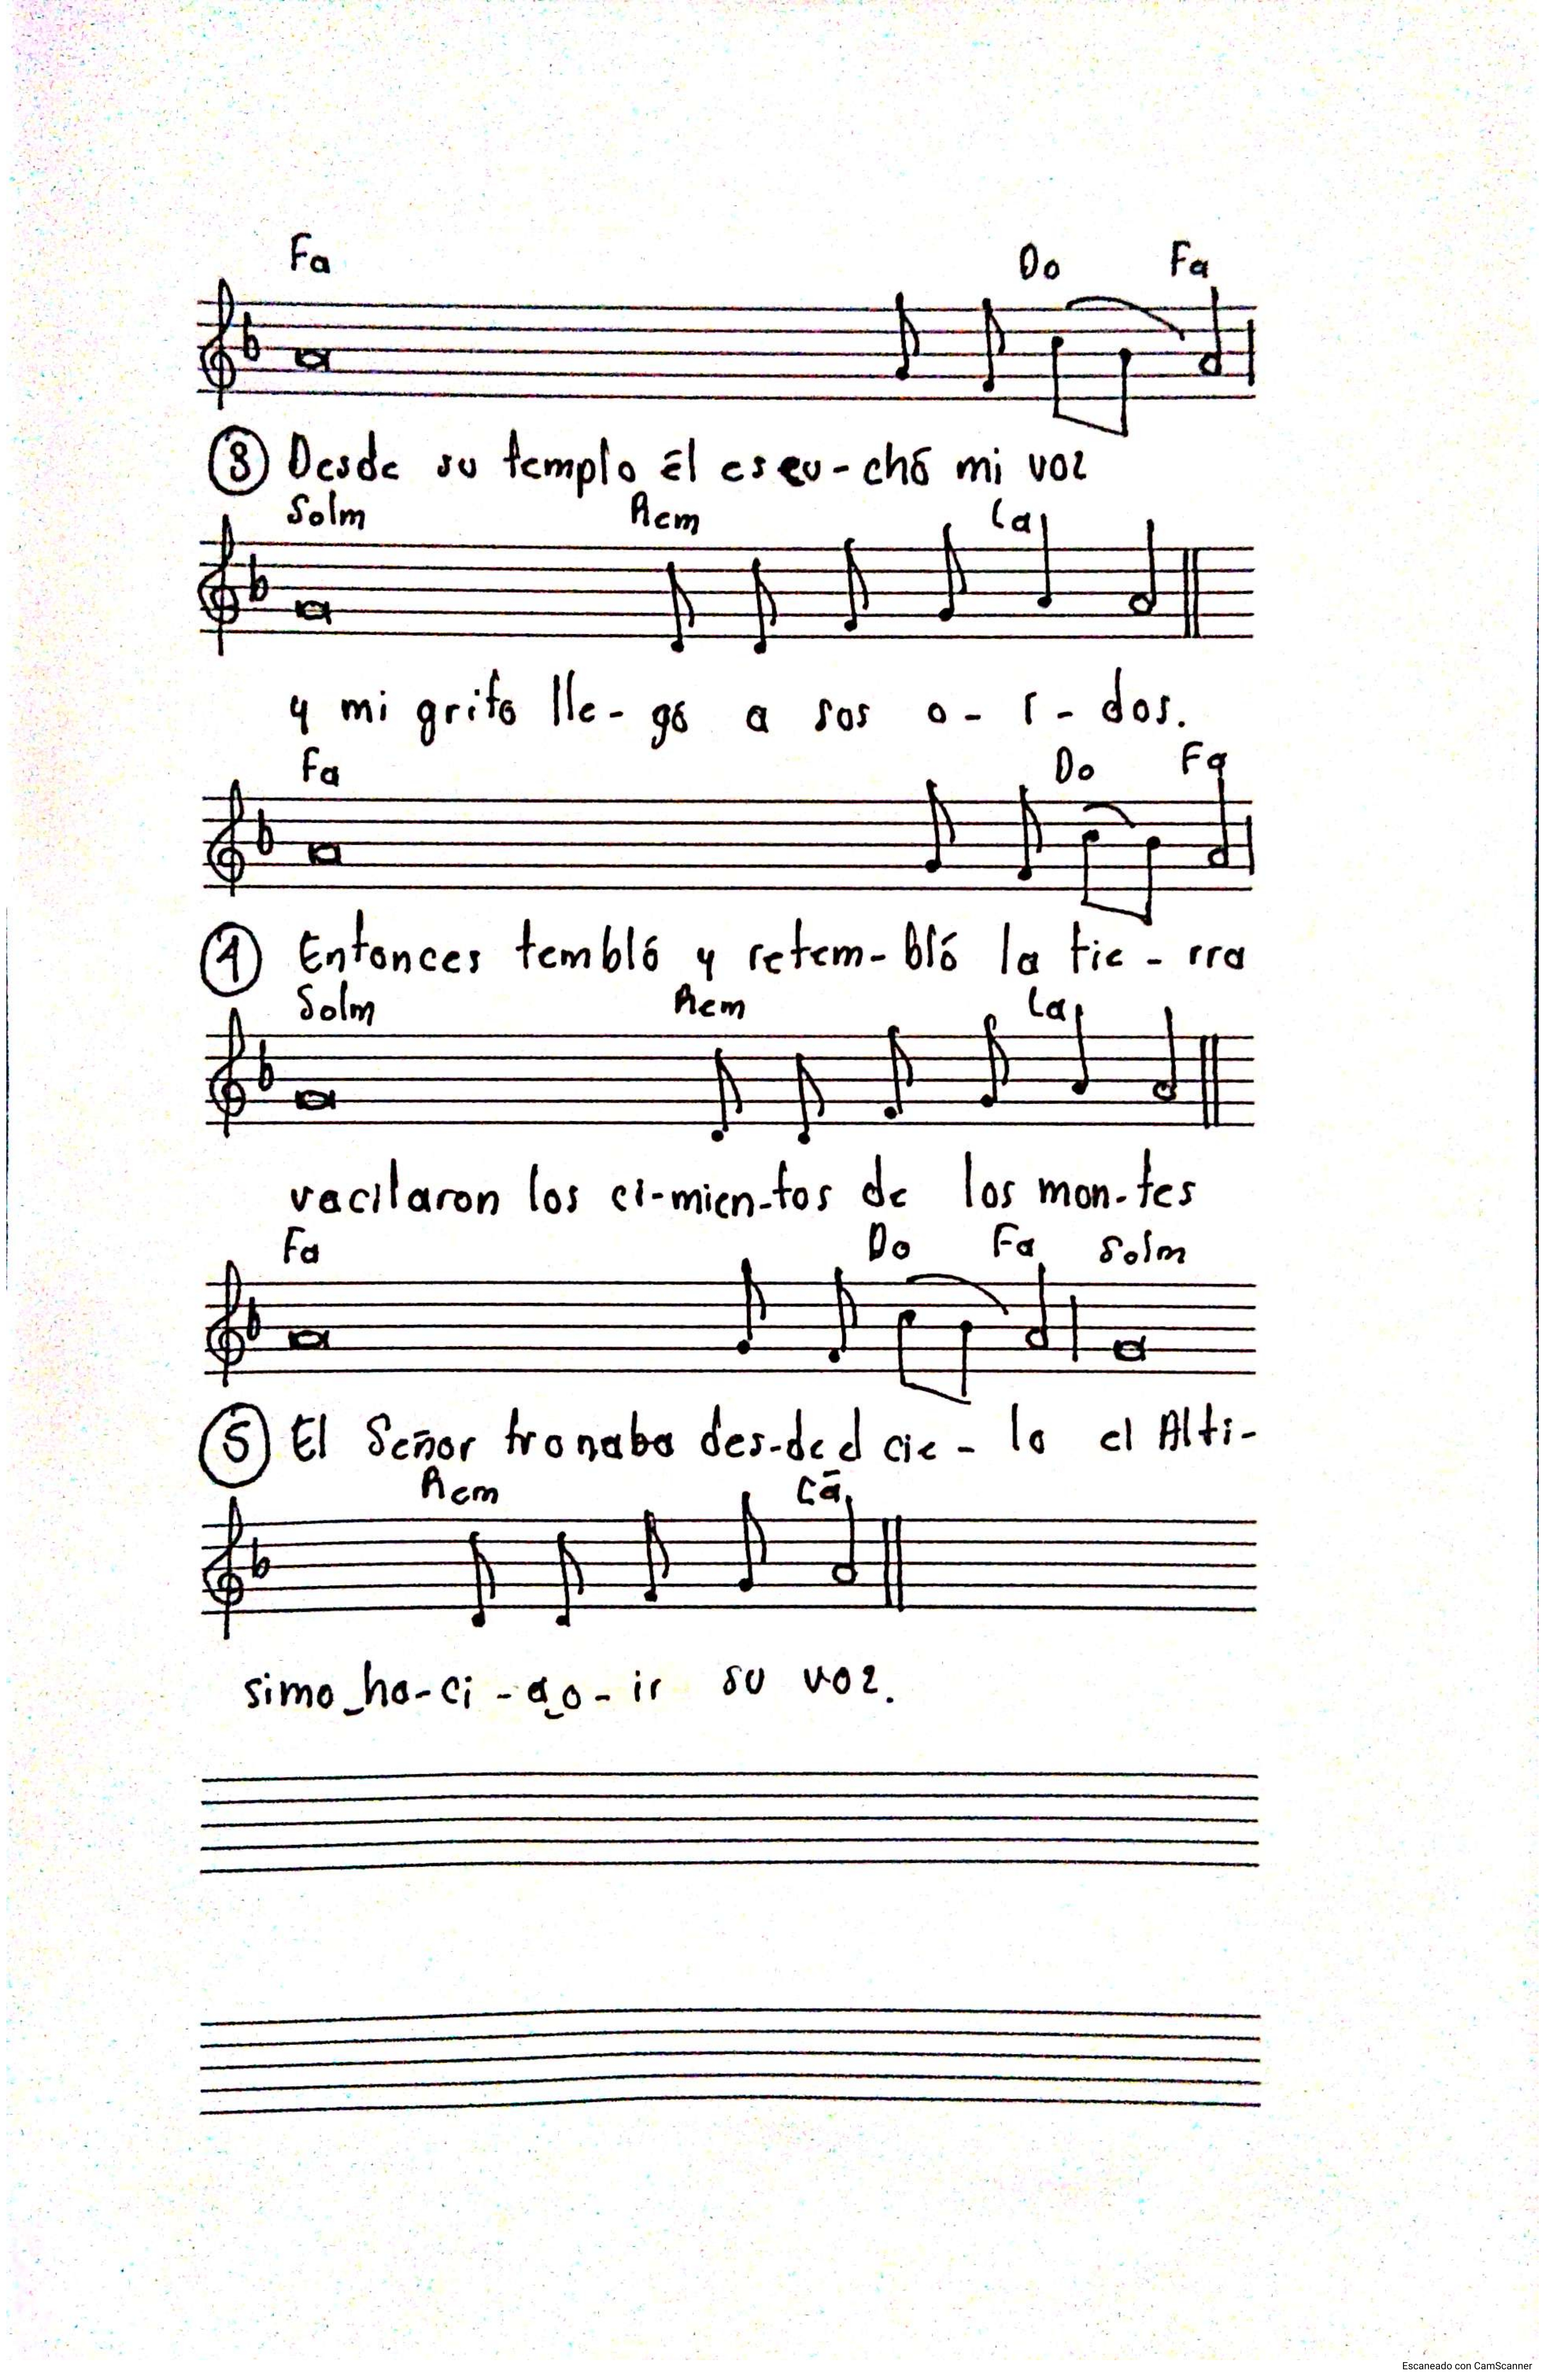 Fa Do Fa
③ Desde su templo él escu-chó mi voz
Solm Rem La
y mi grito lle-gó a sus o-í-dos.
Fa Do Fa
④ Entonces tembló y retem-bló la tie-rra
Solm Rem La
vacilaron los ci-mien-tos de los mon-tes
Fa Do Fa Solm
⑤ El Señor tronaba des-de el cie-lo el Altí-
Rem La
simo ha-cí-a o-ir su voz.
Escaneado con CamScanner